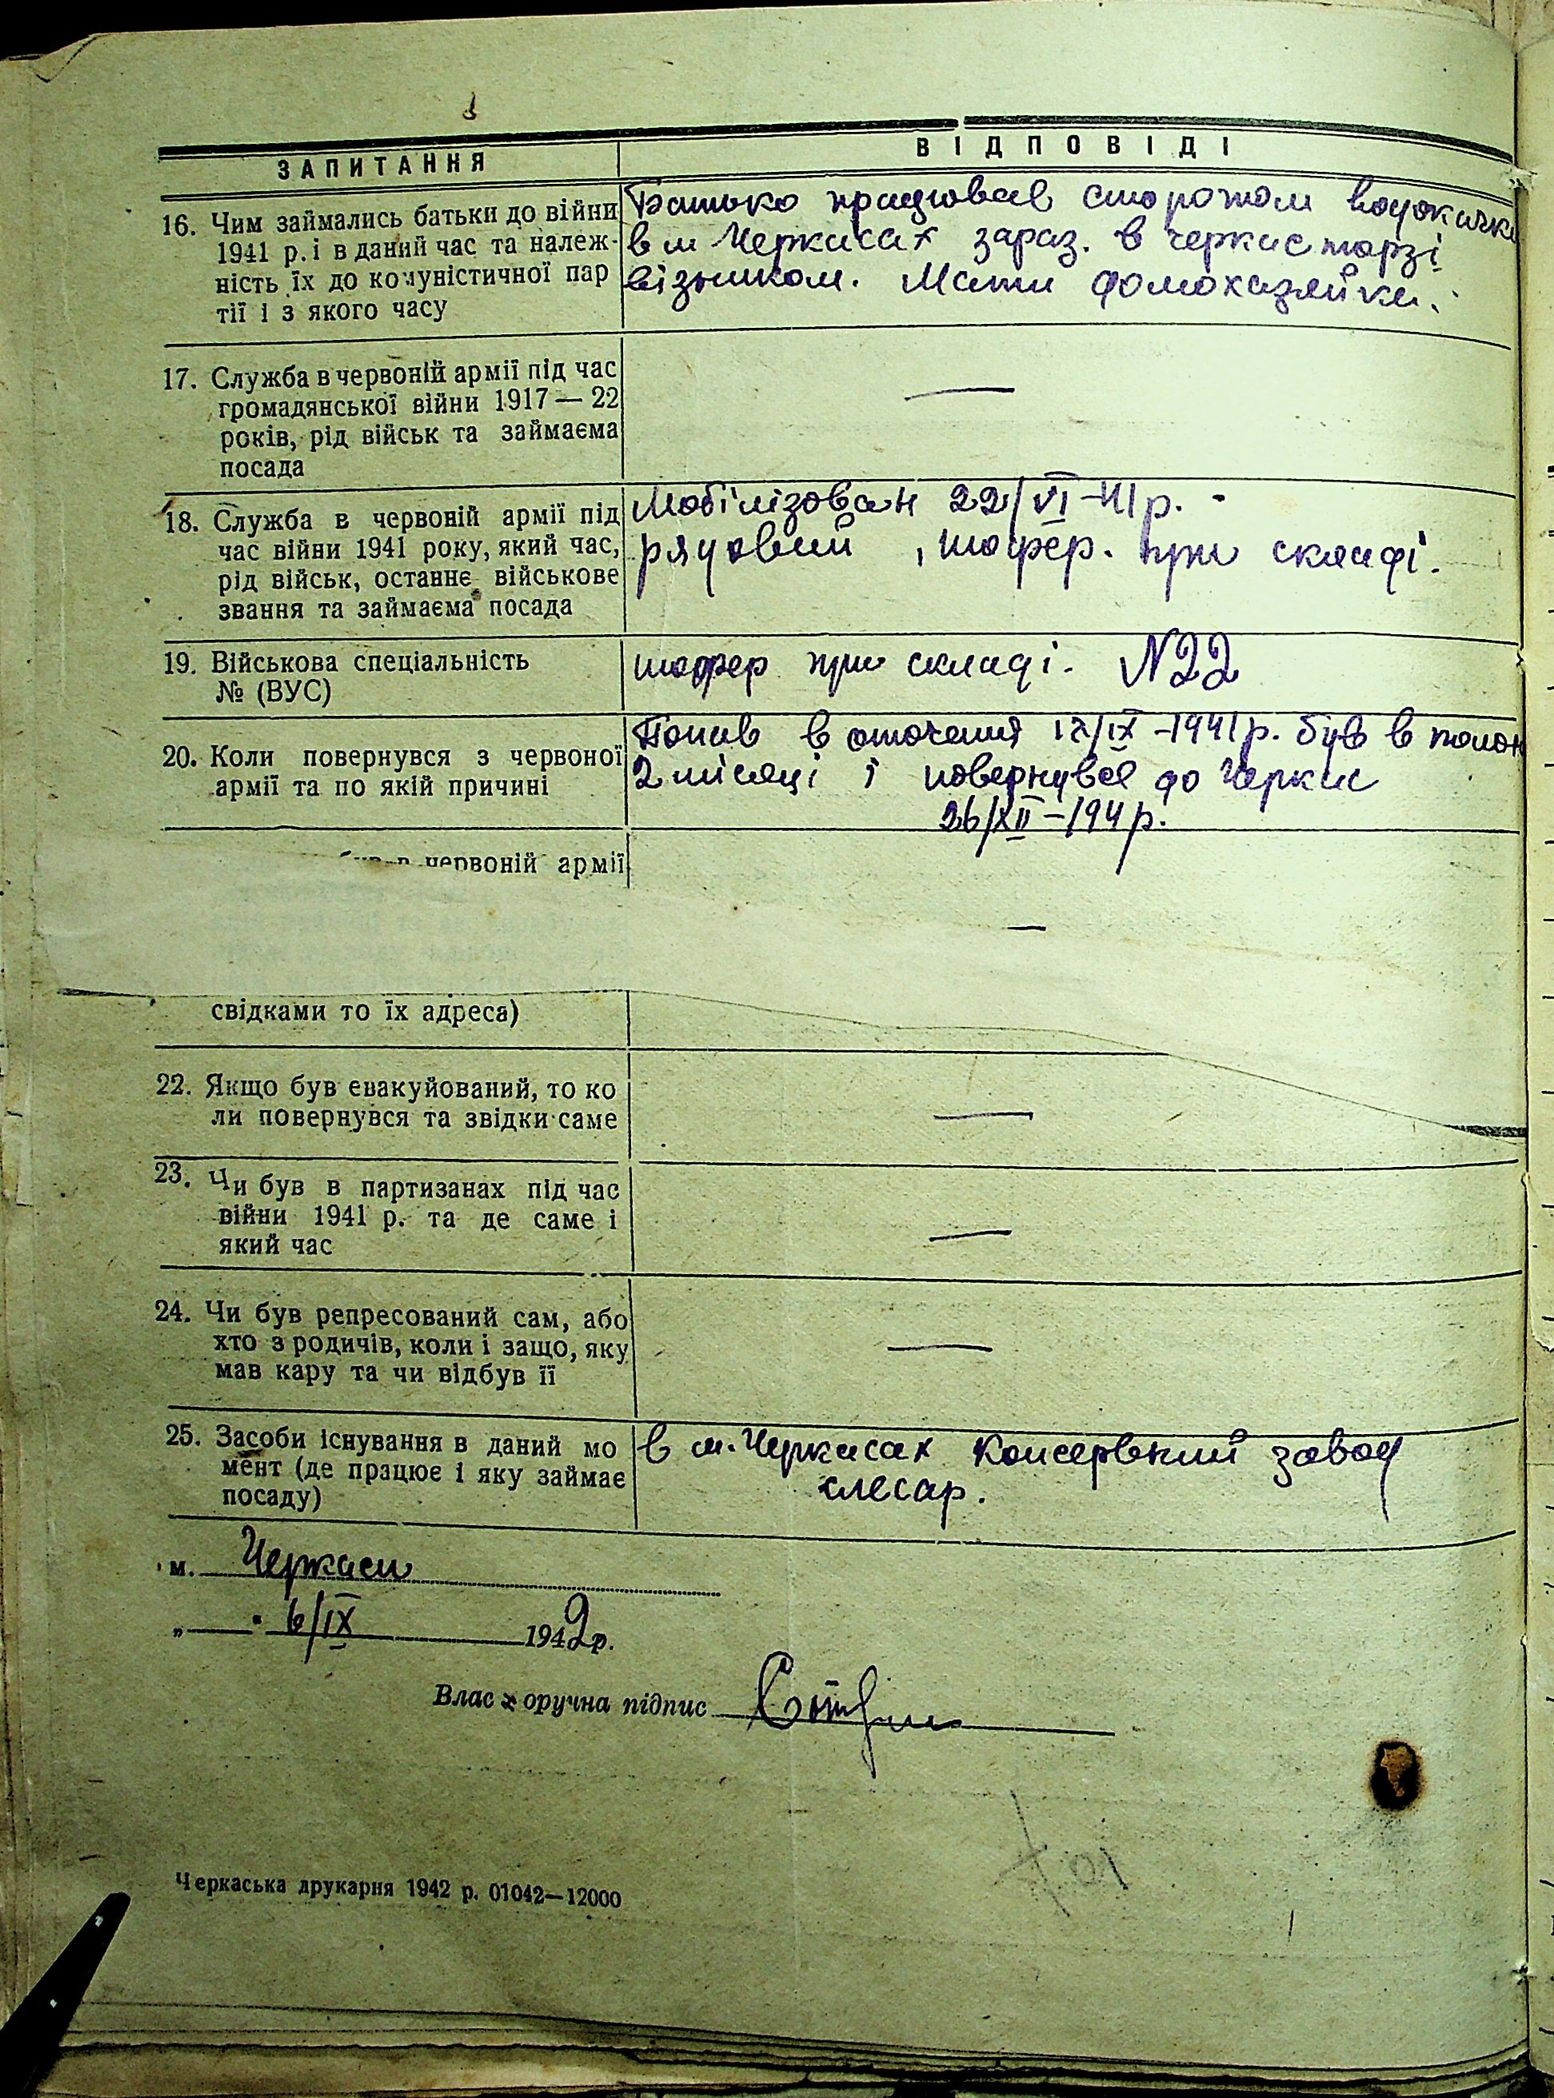 ЗАПИТАННЯ ВІДПОВІДІ
16. Чим займались батьки до війни
1941 р. і в даний час та належ-
ність їх до комуністичної пар
тії і з якого часу
Батько працював сторожом водокачки
в м Черкасах зараз. в черкас торзі
візником. Мати домохазяйка.
17. Служба в червоній армії під час
громадянської війни 1917 — 22
років, рід військ та займаєма
посада
—
18. Служба в червоній армії під
час війни 1941 року, який час,
рід військ, останнє військове
звання та займаєма посада
Мобілізован 22/VI-41р. -
рядовий, шофер. при складі.
19. Військова спеціальність
№ (ВУС)
шофер при складі. N22
20. Коли повернувся з червоної
армії та по якій причині
Попав в оточення 12/IX-1941р. був в полон
2 місяці і повернувся до Черкас
26/XII-194р.
був в червоній армії
—
свідками то їх адреса)
22. Якщо був евакуйований, то ко
ли повернувся та звідки саме
—
23. Чи був в партизанах під час
війни 1941 р. та де саме і
який час
—
24. Чи був репресований сам, або
хто з родичів, коли і защо, яку
мав кару та чи відбув її
—
25. Засоби існування в даний мо
мент (де працює і яку займає
посаду)
в м. Черкасах Консервний завод
слесар.
м. Черкаси
„ 6/IX 1942р.
Власноручна підпис
Черкаська друкарня 1942 р. 01042—12000